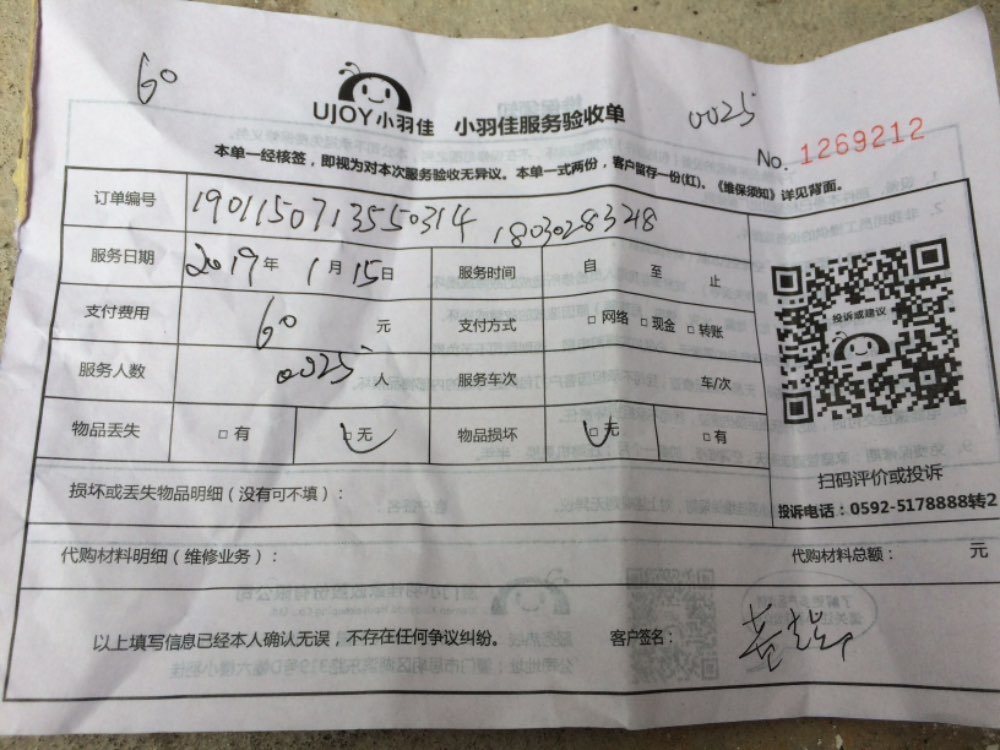 60
UJOY小羽佳 小羽佳服务验收单
0025
No. 1269212
本单一经核签，即视为对本次服务验收无异议。本单一式两份，客户留存一份(红)。《维保须知》详见背面。
订单编号 1901150713550314 18030283328
服务日期 2019年 1月 15日 服务时间 自 至 止
支付费用 60 元 支付方式 □ 网络 □ 现金 □ 转账
服务人数 0025 人 服务车次 车/次
物品丢失 □ 有 □ 无 物品损坏 □ 无 □ 有
投诉或建议
扫码评价或投诉
投诉电话：0592-5178888转2
损坏或丢失物品明细（没有可不填）：
代购材料明细（维修业务）： 代购材料总额： 元
以上填写信息已经本人确认无误，不存在任何争议纠纷。 客户签名：